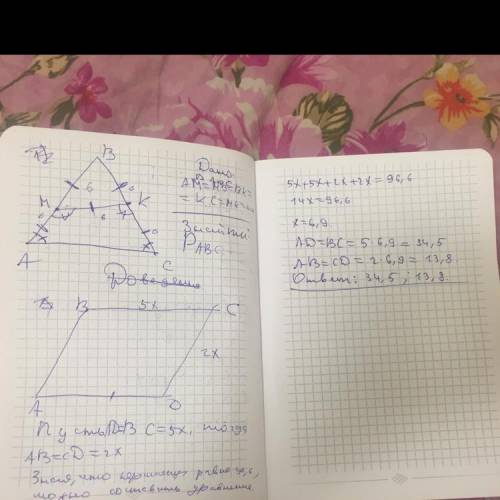 B
Дано
6
M
K
6
= KC = MK =
Знайти
P ABC
A
C
B
5x
C
2x
A
D
Пусть AD=BC=5x, тогда
AB=CD=2x
Зная, что периметр равен 96,6,
можно составить уравнение
5x+5x+2x+2x=96,6
14x=96,6
x=6,9
AD=BC=5·6,9=34,5
AB=CD=2·6,9=13,8
Ответ: 34,5; 13,8.